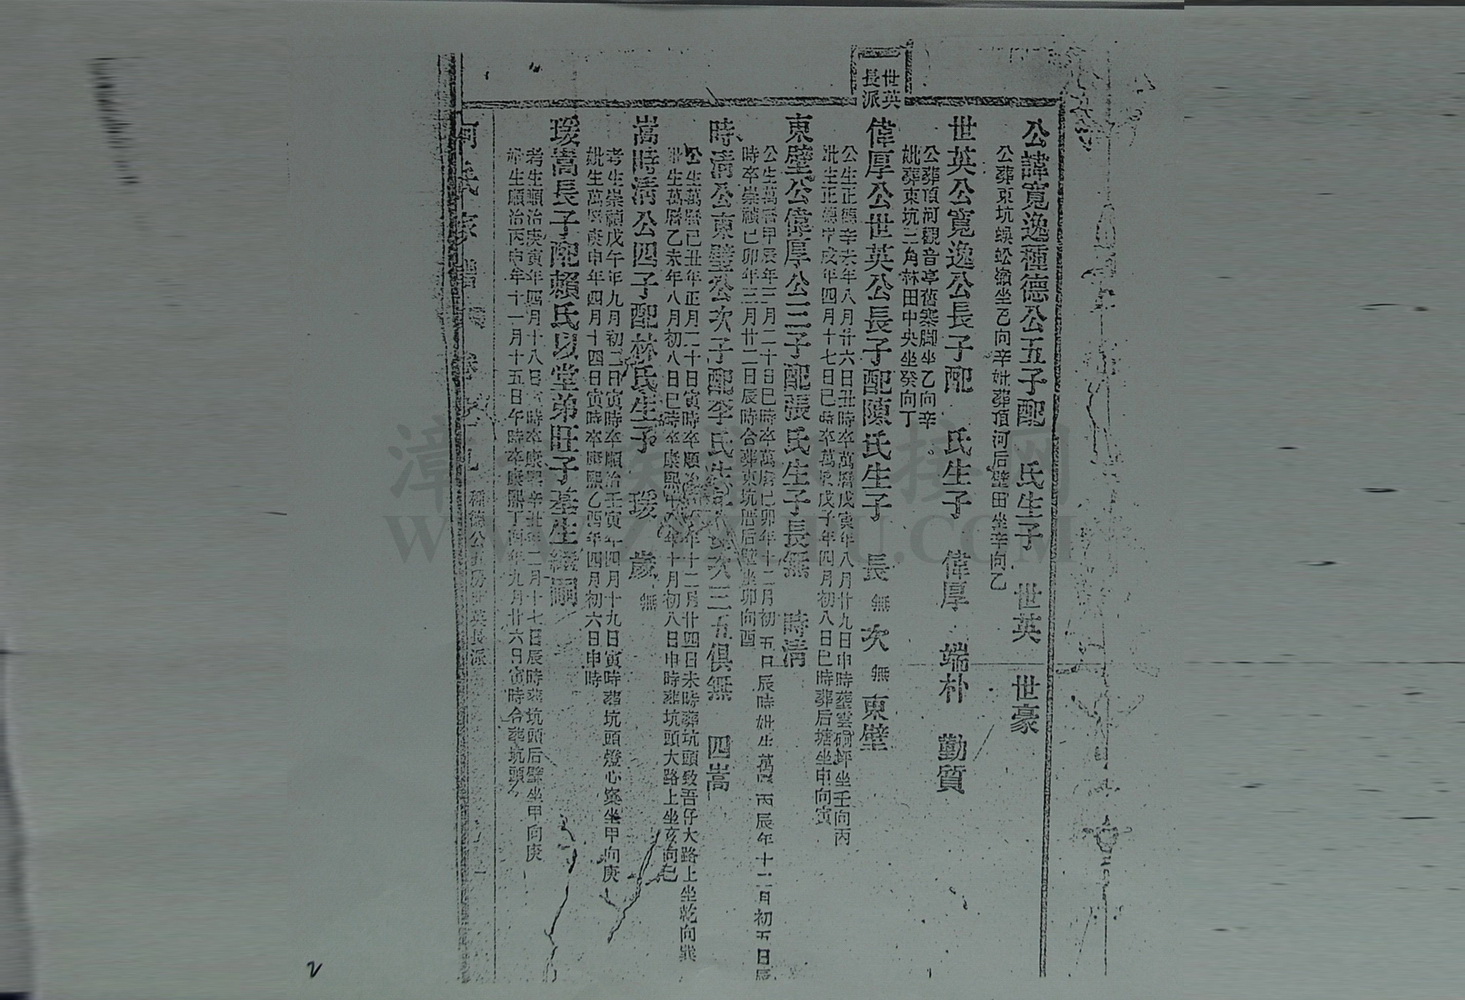 世英
長派
公諱寬逸種德公五子配 氏生子 世英 世豪
公葬東坑蜈蚣嶺坐乙向辛妣葬頂河后壁田坐辛向乙
世英公寬逸公長子配 氏生子 偉厚 端朴 勤質
公葬頂河觀音亭舊寨脚坐乙向辛
妣葬東坑三角林田中央坐癸向丁
偉厚公世英公長子配陳氏生子 長無 次無 東壁
公生正德辛未年八月廿六日丑時卒萬曆戊寅年八月廿九日申時葬雲硐坪坐壬向丙
妣生正德甲戌年四月十七日巳時卒萬曆戊子年四月初八日巳時葬后塘坐申向寅
東壁公偉厚公三子配張氏生子長無 時清
公生萬曆甲辰年三月二十日巳時卒萬曆己卯年十二月初五日辰時妣生萬曆丙辰年十二月初五日辰
時卒崇禎己卯年三月廿二日辰時合葬東坑厝后壁坐卯向酉
時清公東壁公次子配李氏生 次三五俱無 四嵩
公生萬曆己丑年正月二十日寅時卒順治 年十二月廿四日未時葬坑頭致吾仔大路上坐乾向巽
妣生萬曆乙未年八月初八日巳時卒康熙 年十月初八日申時葬坑頭大路上坐亥向巳
嵩時清公四子配林氏生子 瑗 歲無
考生崇禎戊午年九月初二日寅時卒順治壬寅年四月十九日寅時葬坑頭燈心窠坐甲向庚
妣生萬曆庚申年四月十四日寅時卒康熙乙酉年四月初六日申時
瑗嵩長子配賴氏以堂弟旺子基生繼嗣
考生順治庚寅年四月十八日 時卒康熙辛丑年二月十七日辰時葬坑頭后壁坐甲向庚
妣生順治丙申年十一月十五日午時卒康熙丁酉年九月廿六日寅時合葬坑頭
氏家譜 卷 種德公五房世英長派
2